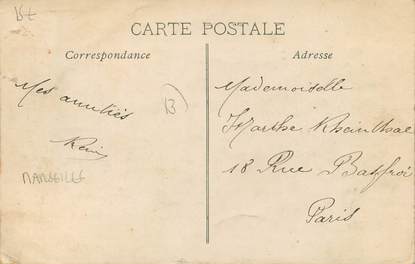 CARTE POSTALE
Correspondance
Mes amitiés
MARSEILLE
13
Adresse
Mademoiselle
Marthe Rheinthal
18 Rue Baffroi
Paris